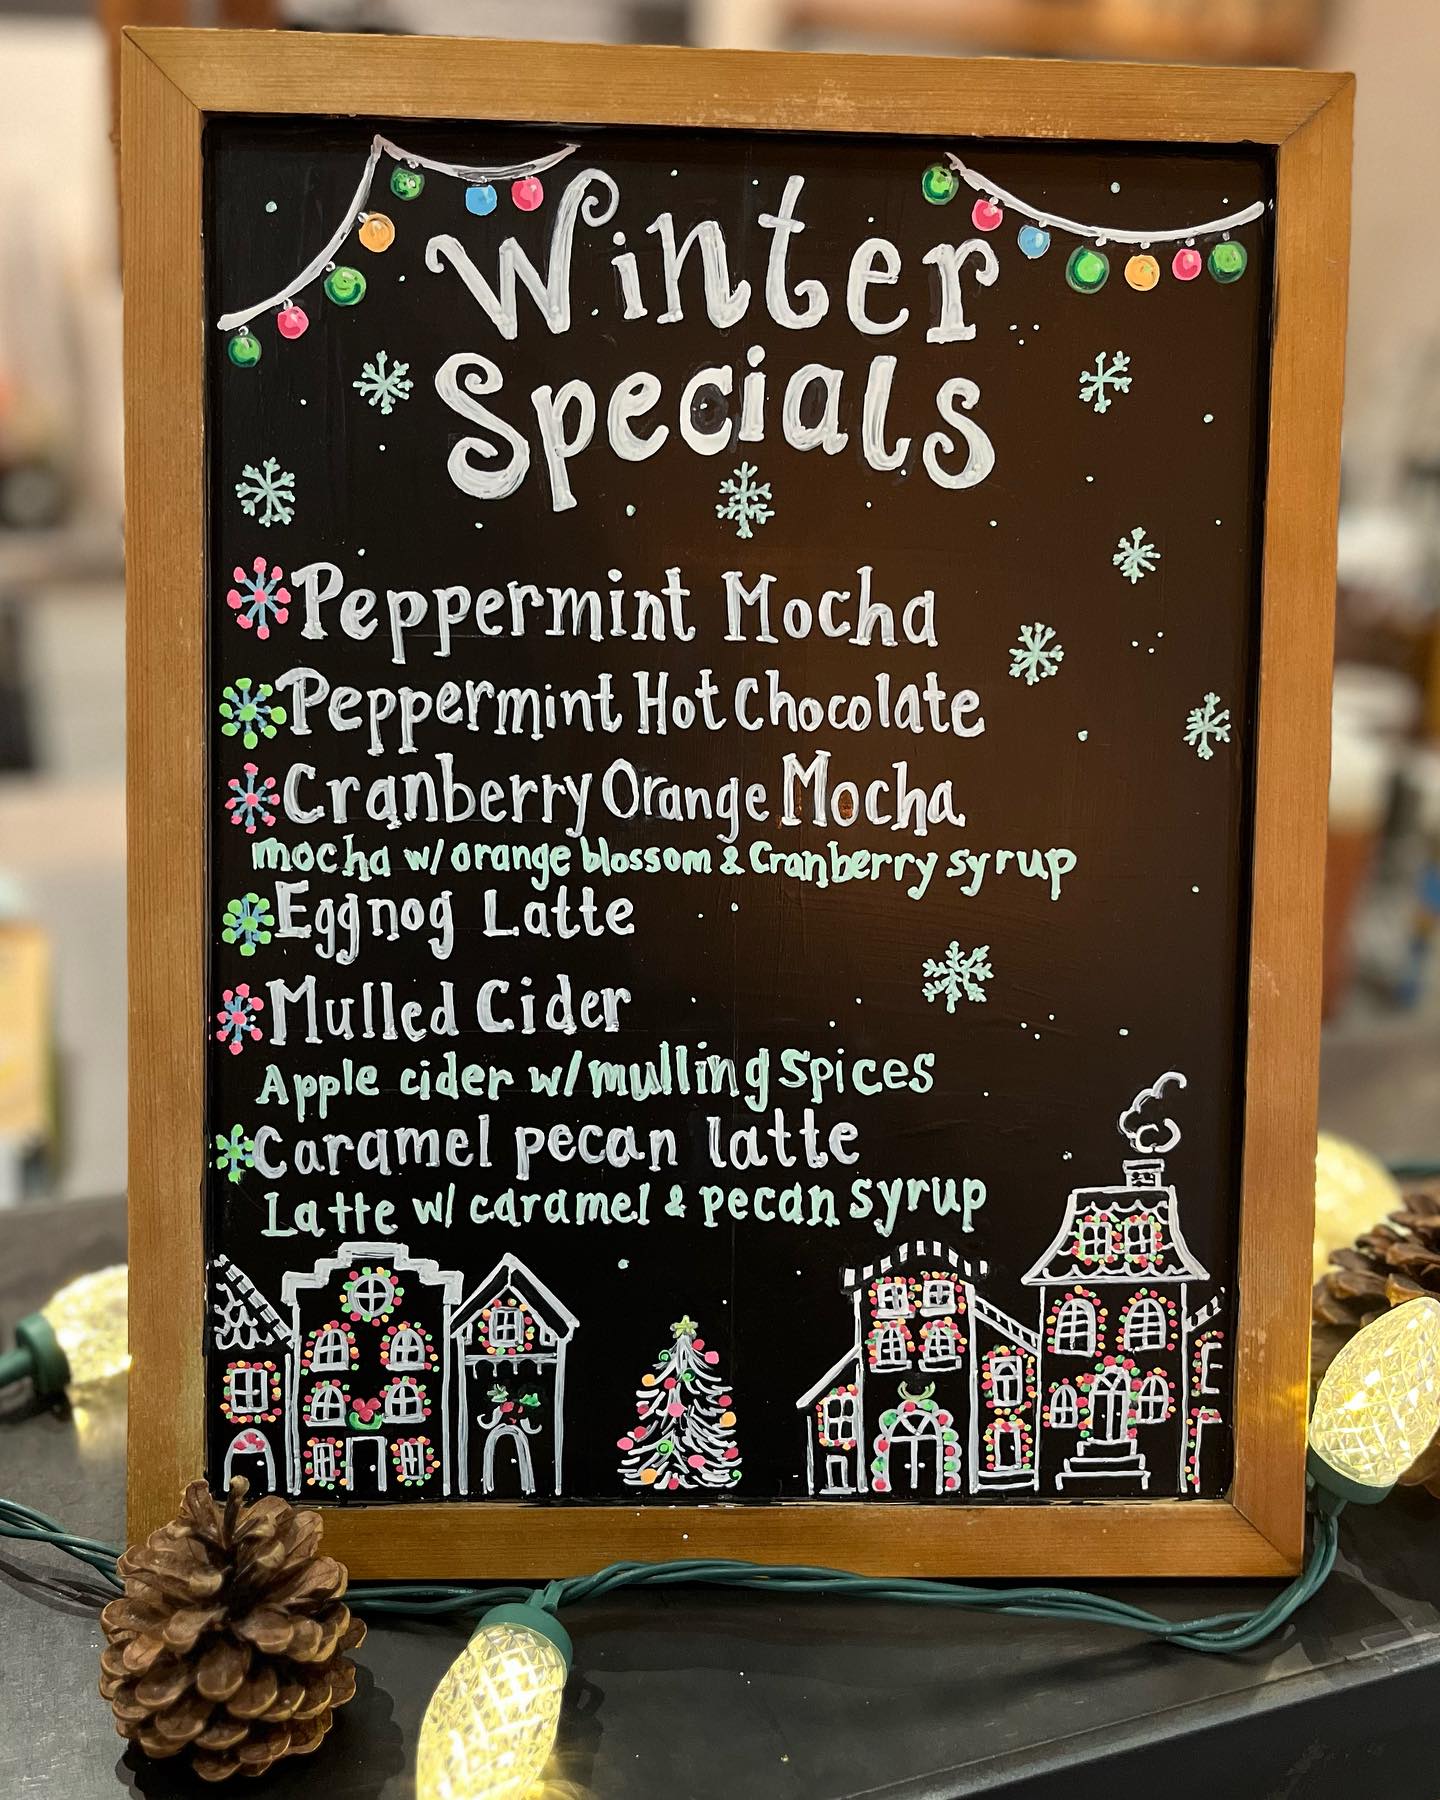 Winter
Specials
Peppermint Mocha
Peppermint Hot Chocolate
Cranberry Orange Mocha
mocha w/ orange blossom & Cranberry syrup
Eggnog Latte
Mulled Cider
Apple cider w/ mulling spices
Caramel pecan latte
Latte w/ caramel & pecan syrup